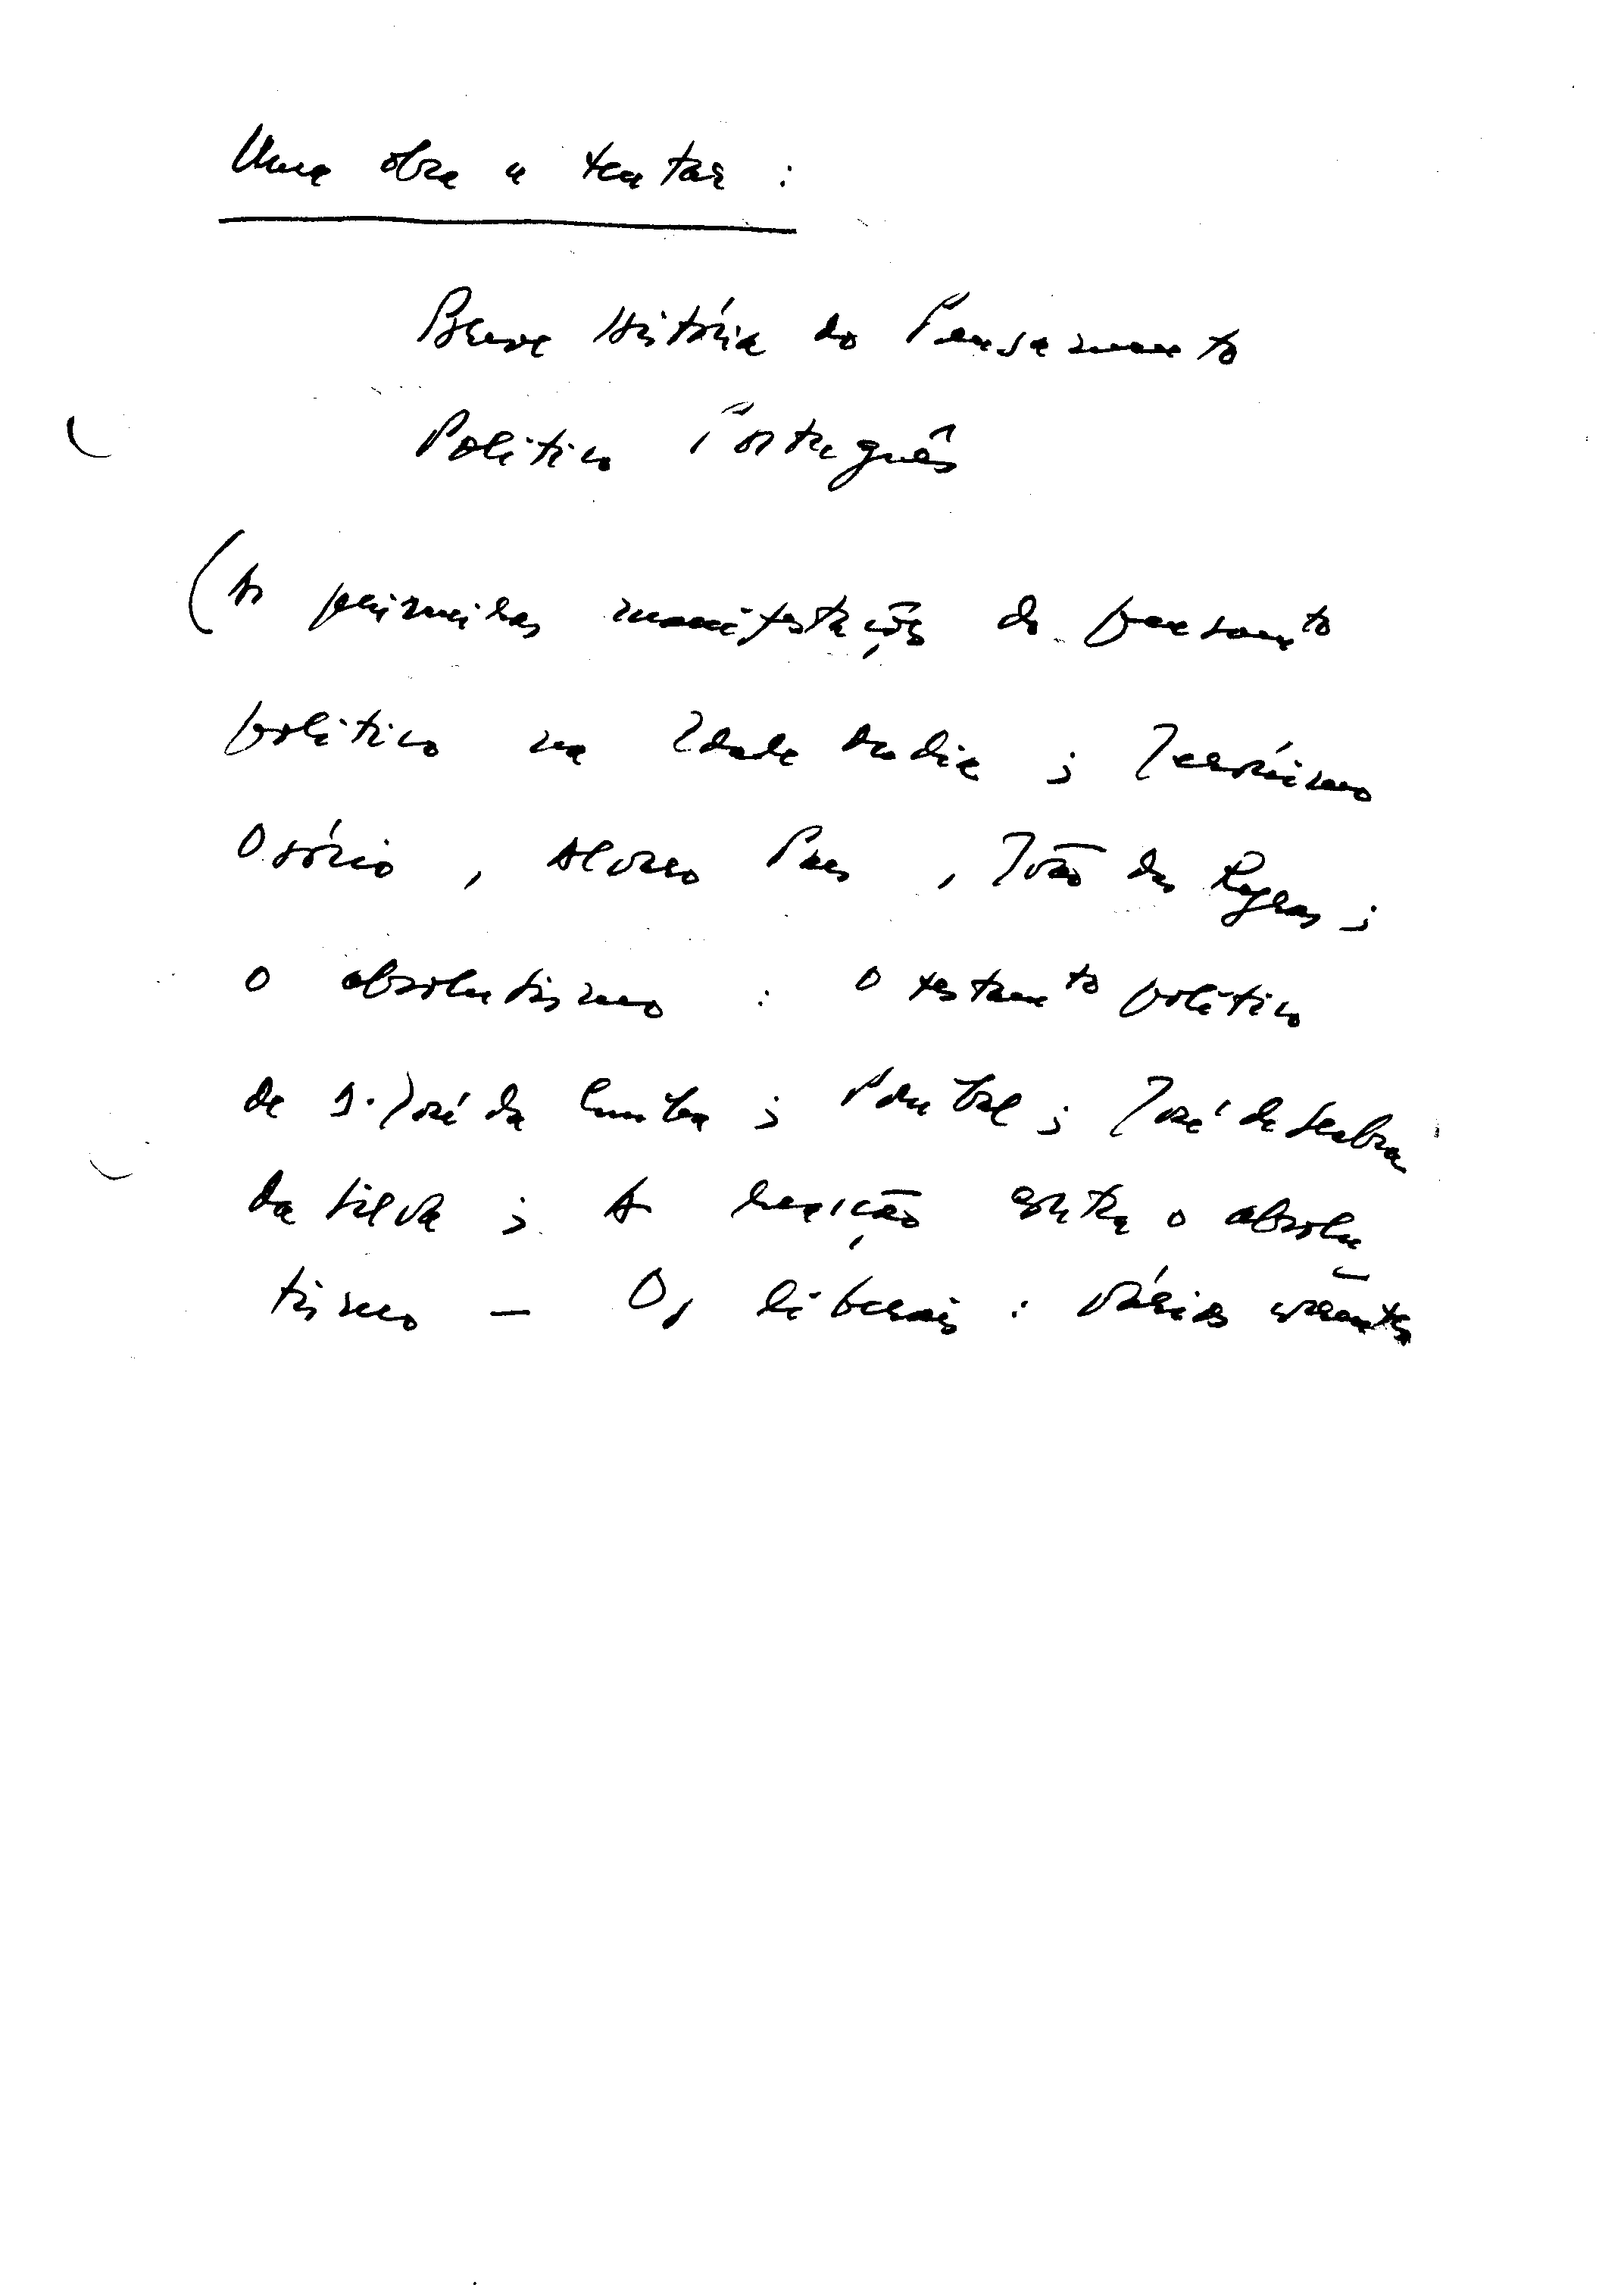 Uma obra a tentar :
Breve História do Pensamento
Politico Português
(As primeiras manifestações do pensamto
politico na Idade Media ; Jerónimo
Osório , Alvaro Pais , João das Regras ;
o absolutismo : o testamto politico
de D. José da Cunha ; Pombal ; José de Seabra
da Silva ; A reacção contra o absolu-
tismo - Os liberais : vários